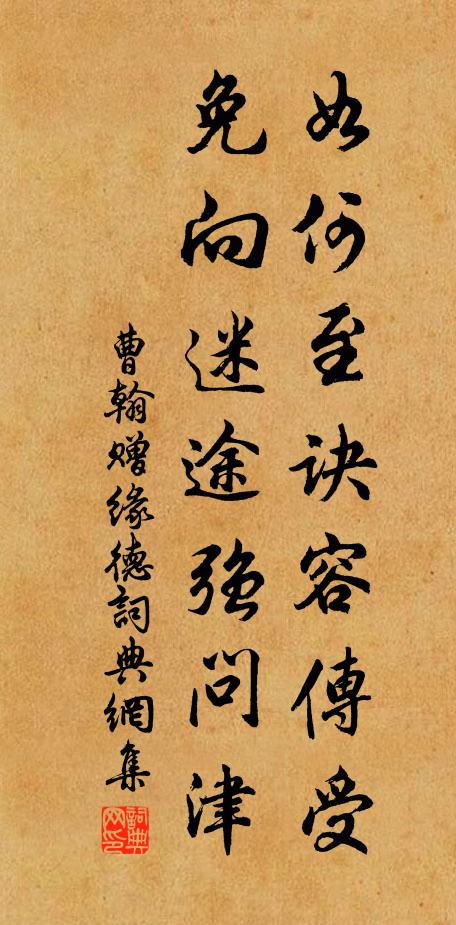 如何至訣容傳受
免向迷途強問津
曹翰贈緣德詞典網集
詞典網印